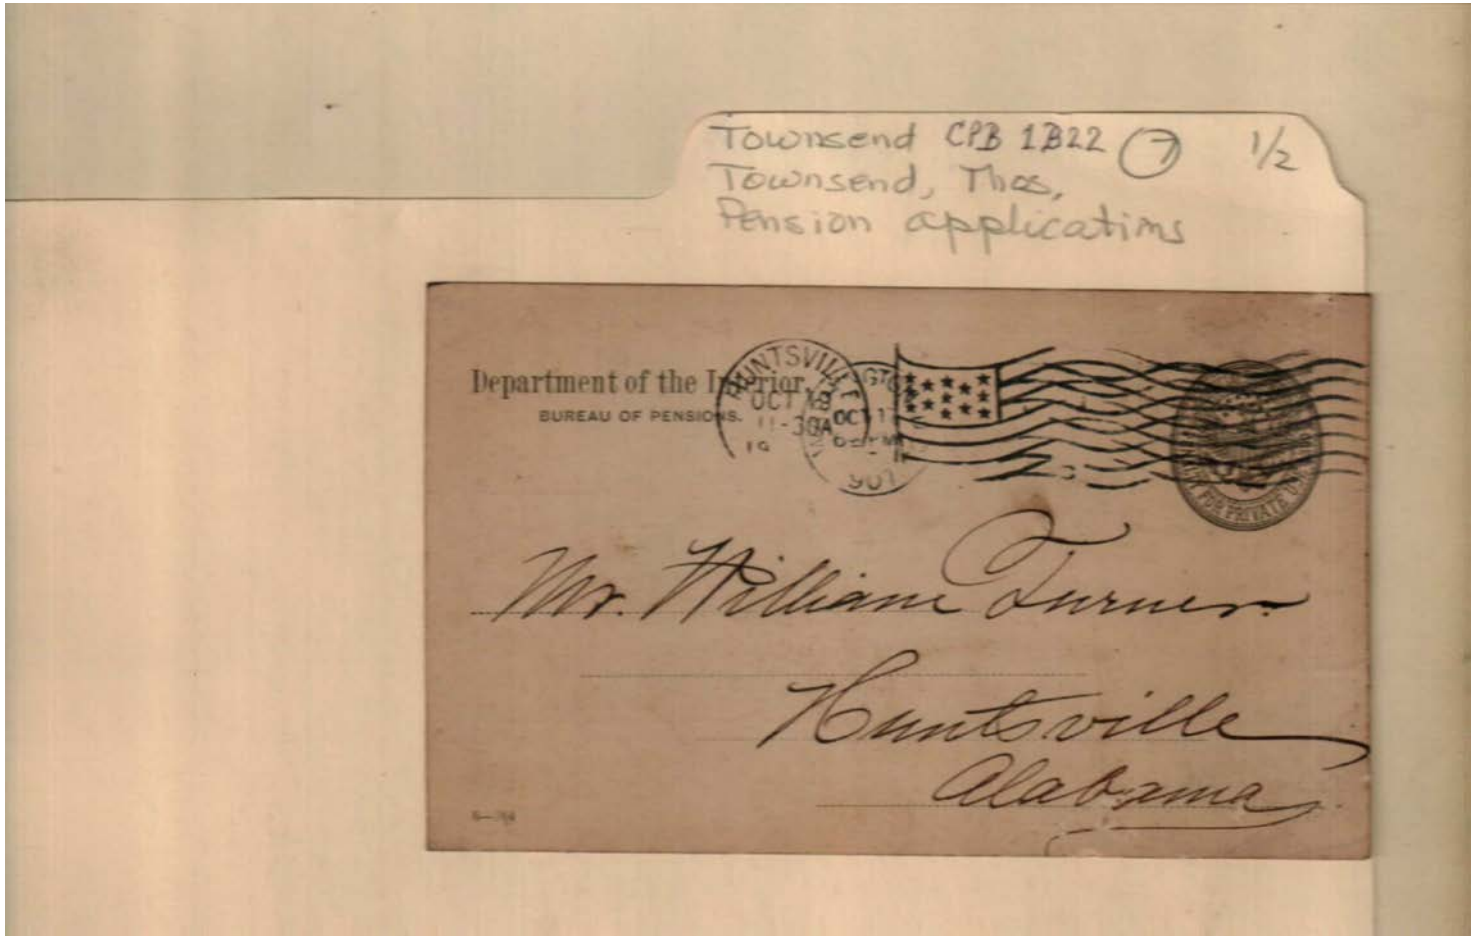 Townsend CPB 1B22 7 1/2
Townsend, Thos,
Pension applications
Department of the Interior,
BUREAU OF PENSIONS.
HUNTSVILLE
OCT 18
11-30A
OCT 17
6 PM
907
FOR PRIVATE USE
Mr. William Turner.
Huntsville
Alabama